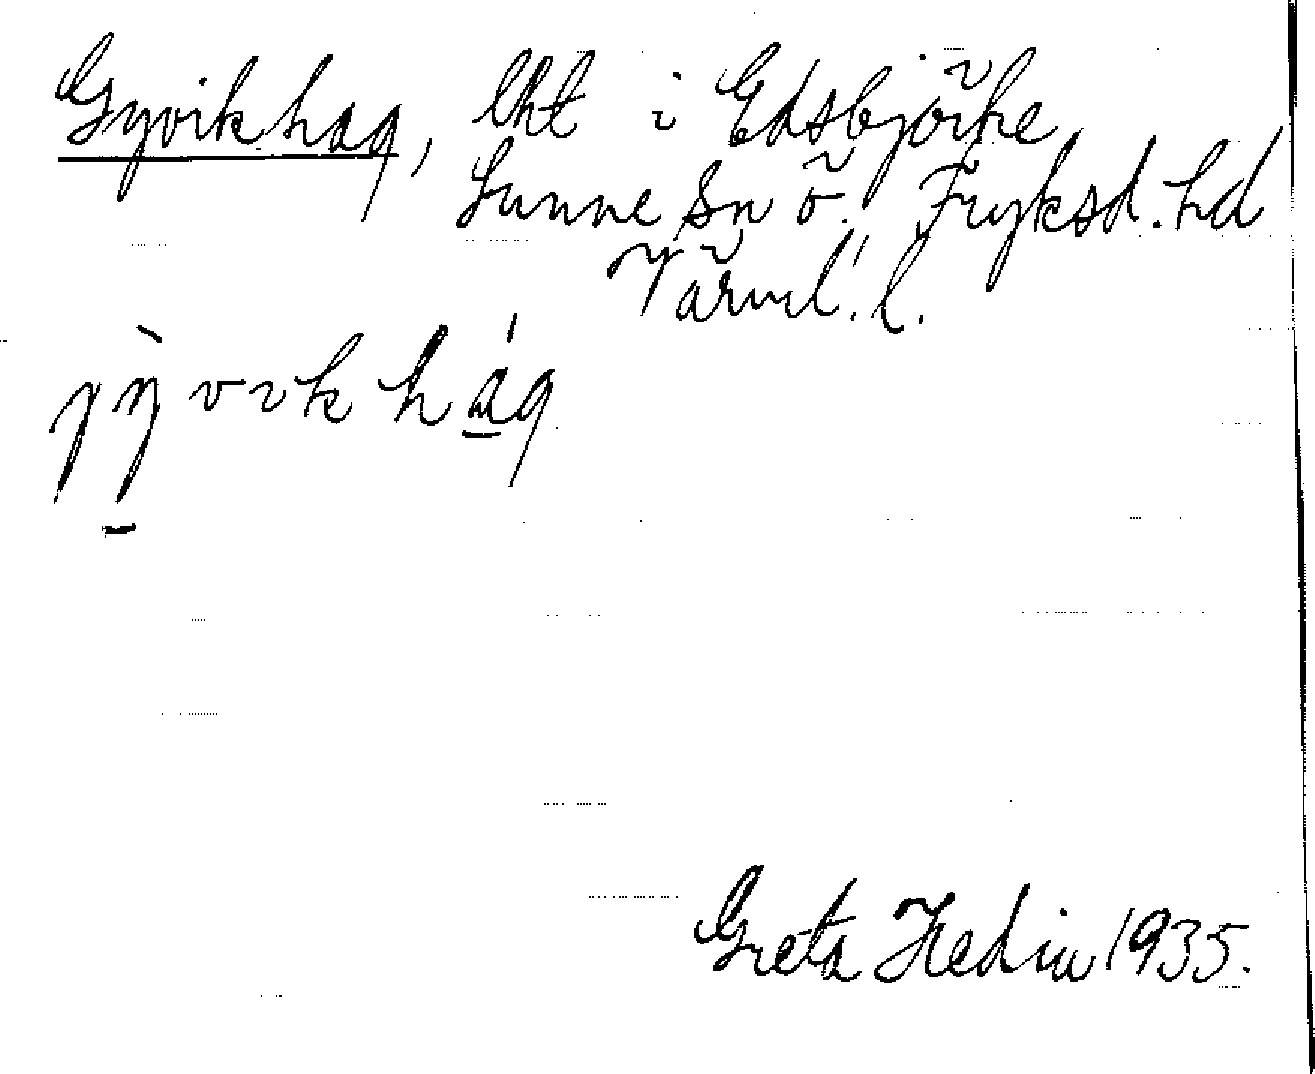 Gyvikhag, lht i Edsbjörke,
Sunne sn ö. Fryksd. hd
Värml. l.
jỳvikhág
Greta Hedin 1935.